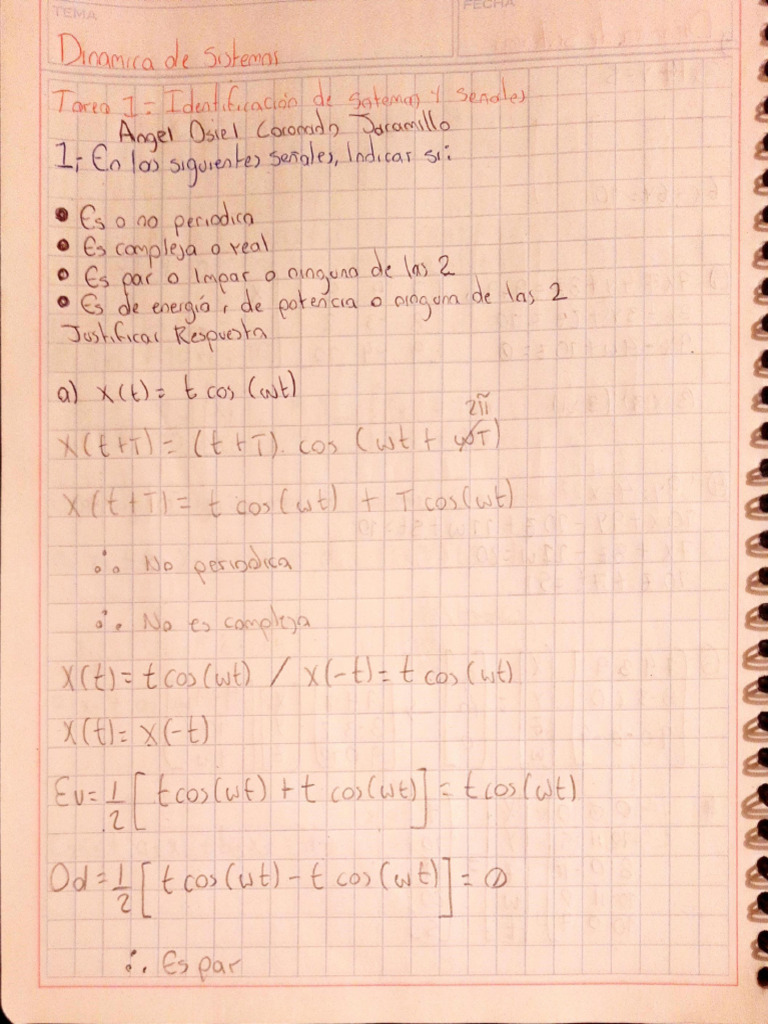 TEMA
FECHA
Dinamica de Sistemas
Tarea 1 = Identificación de Sistemas y señales
Angel Osiel Coronado Jaramillo
1.- En las siguientes señales, Indicar si:
• Es o no periodica
• Es compleja o real
• Es par o Impar o ninguna de las 2
• Es de energía, de potencia o ninguna de las 2
Justificar Respuesta
a) x(t) = t cos (wt)
2π
X(t+T) = (t+T). cos (wt + wT)
X(t+T) = t cos(wt) + T cos(wt)
∴ No periodica
∴ No es compleja
X(t) = t cos(wt) / X(-t) = t cos(wt)
X(t) = X(-t)
Ev = 1/2 [t cos(wt) + t cos(wt)] = t cos(wt)
Od = 1/2 [t cos(wt) - t cos(wt)] = 0
∴ Es par